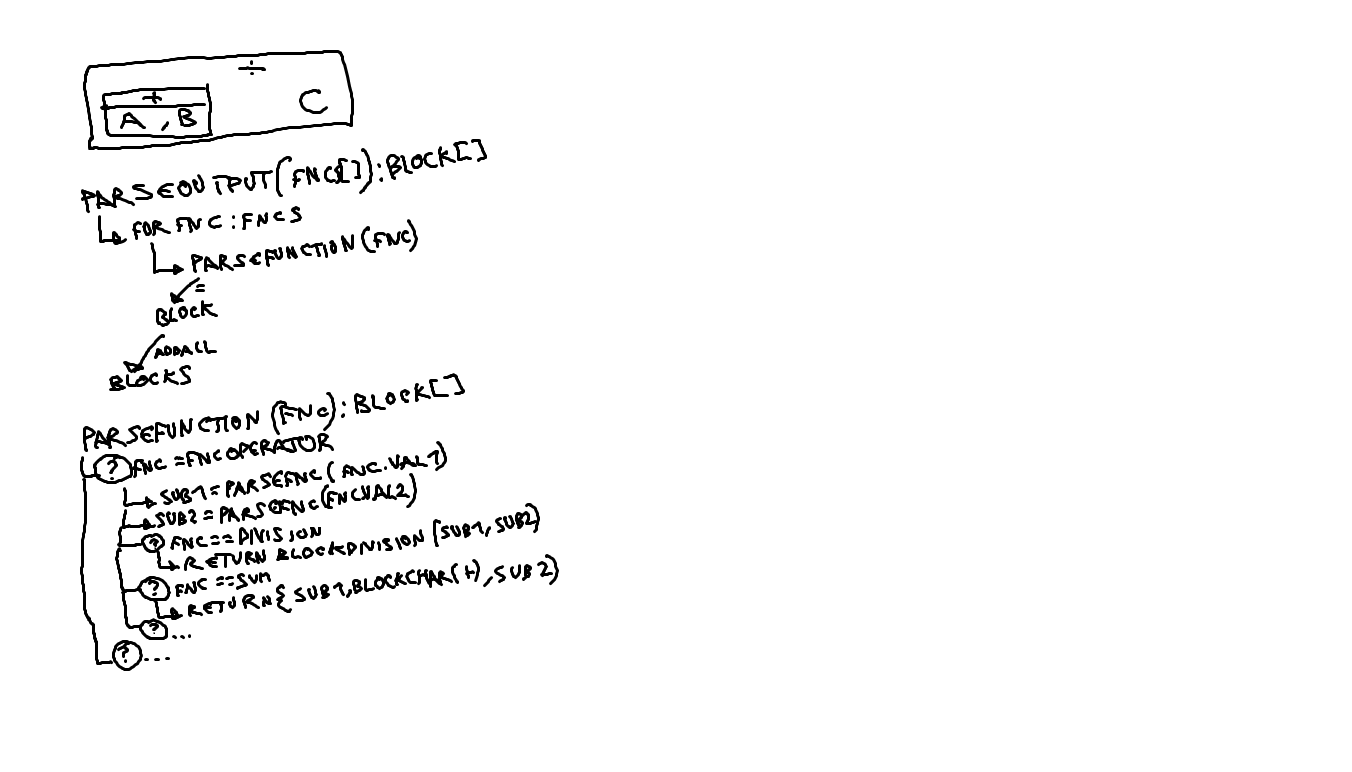 ÷
+ C
A , B
PARSEOUTPUT(FNCS[]):BLOCK[]
FOR FNC : FNCS
PARSEFUNCTION(FNC)
=
BLOCK
ADDALL
BLOCKS
PARSEFUNCTION(FNC):BLOCK[]
? FNC = FNCOPERATOR
SUB1 = PARSEFNC(FNC.VAL1)
SUB2 = PARSEFNC(FNCVAL2)
? FNC == DIVISION
RETURN BLOCKDIVISION(SUB1, SUB2)
? FNC == SUM
RETURN{ SUB1, BLOCKCHAR(+), SUB2}
? ...
? ...